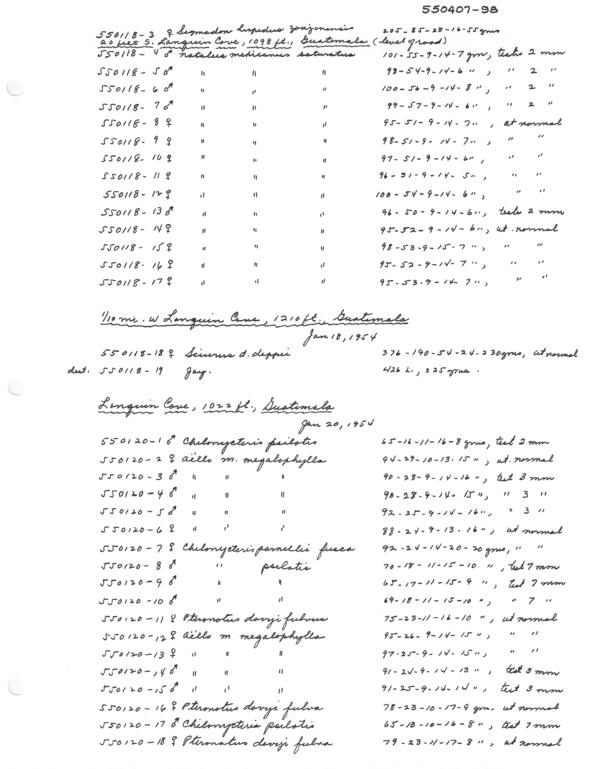 550407-98
550118-3 ♀ Sigmodon hispidus zanjonensis 205-85-28-16-55 gms
20 feet S. Lanquin Cave, 1098 ft., Guatemala (level ground)
550118-4 ♂ Natalus mexicanus saturatus 101-55-9-14-7 gm, testes 2 mm
550118-5 ♂ " " " 98-54-9-14-6 ", " 2 "
550118-6 ♂ " " " 100-56-9-14-8 ", " 2 "
550118-7 ♂ " " " 99-57-9-14-6 ", " 2 "
550118-8 ♀ " " " 95-51-9-14-7 ", ut normal
550118-9 ♀ " " " 98-51-9-14-7 ", " "
550118-10 ♀ " " " 97-51-9-14-6 ", " "
550118-11 ♀ " " " 96-51-9-14-5 ", " "
550118-12 ♀ " " " 100-54-9-14-6 ", " "
550118-13 ♂ " " " 96-50-9-14-6 ", testes 2 mm
550118-14 ♀ " " " 95-52-9-14-6 ", ut. normal
550118-15 ♀ " " " 98-53-9-15-7 ", " "
550118-16 ♀ " " " 95-52-9-14-7 ", " "
550118-17 ♀ " " " 95-53-9-14-7 ", " "
1/10 mi. W Lanquin Cave, 1210 ft., Guatemala
Jan 18, 1954
550118-18 ♀ Sciurus d. deppei 376-190-54-24-230 gms, ut normal
dest. 550118-19 Jay. 426 L., 225 gms.
Lanquin Cave, 1022 ft., Guatemala
Jan 20, 1954
550120-1 ♂ Chilonycteris psilotis 65-16-11-16-8 gms, test 2 mm
550120-2 ♀ Aëllo m. megalophylla 94-29-10-13-15 ", ut. normal
550120-3 ♂ " " " 90-28-9-14-16 ", test 3 mm
550120-4 ♂ " " " 90-28-9-14-15 ", " 3 "
550120-5 ♂ " " " 92-25-9-14-16 ", " 3 "
550120-6 ♀ " " " 88-24-9-13-16 ", ut normal
550120-7 ♀ Chilonycteris parnellii fusca 92-24-14-20-20 gms, " "
550120-8 ♂ " psilotis 70-18-11-15-10 ", test 7 mm
550120-9 ♂ " " 65-17-11-15-9 ", test 7 mm
550120-10 ♂ " " 69-18-11-15-10 ", " 7 "
550120-11 ♀ Pteronotus davyi fulvus 75-23-11-16-10 ", ut normal
550120-12 ♀ Aëllo m megalophylla 95-26-9-14-15 ", " "
550120-13 ♀ " " " 97-25-9-14-15 ", " "
550120-14 ♂ " " " 91-24-9-14-13 ", test 3 mm
550120-15 ♂ " " " 91-25-9-14-14 ", test 3 mm
550120-16 ♀ Pteronotus davyi fulva 78-23-10-17-9 gm. ut normal
550120-17 ♂ Chilonycteris psilotis 65-18-10-16-8 ", test 7 mm
550120-18 ♀ Pteronotus davyi fulva 79-23-11-17-8 ", ut normal